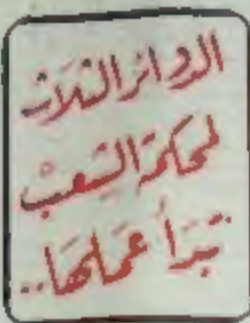 الدوائر الثلاث
لمحكمة الشعب
تبدأ عملها..